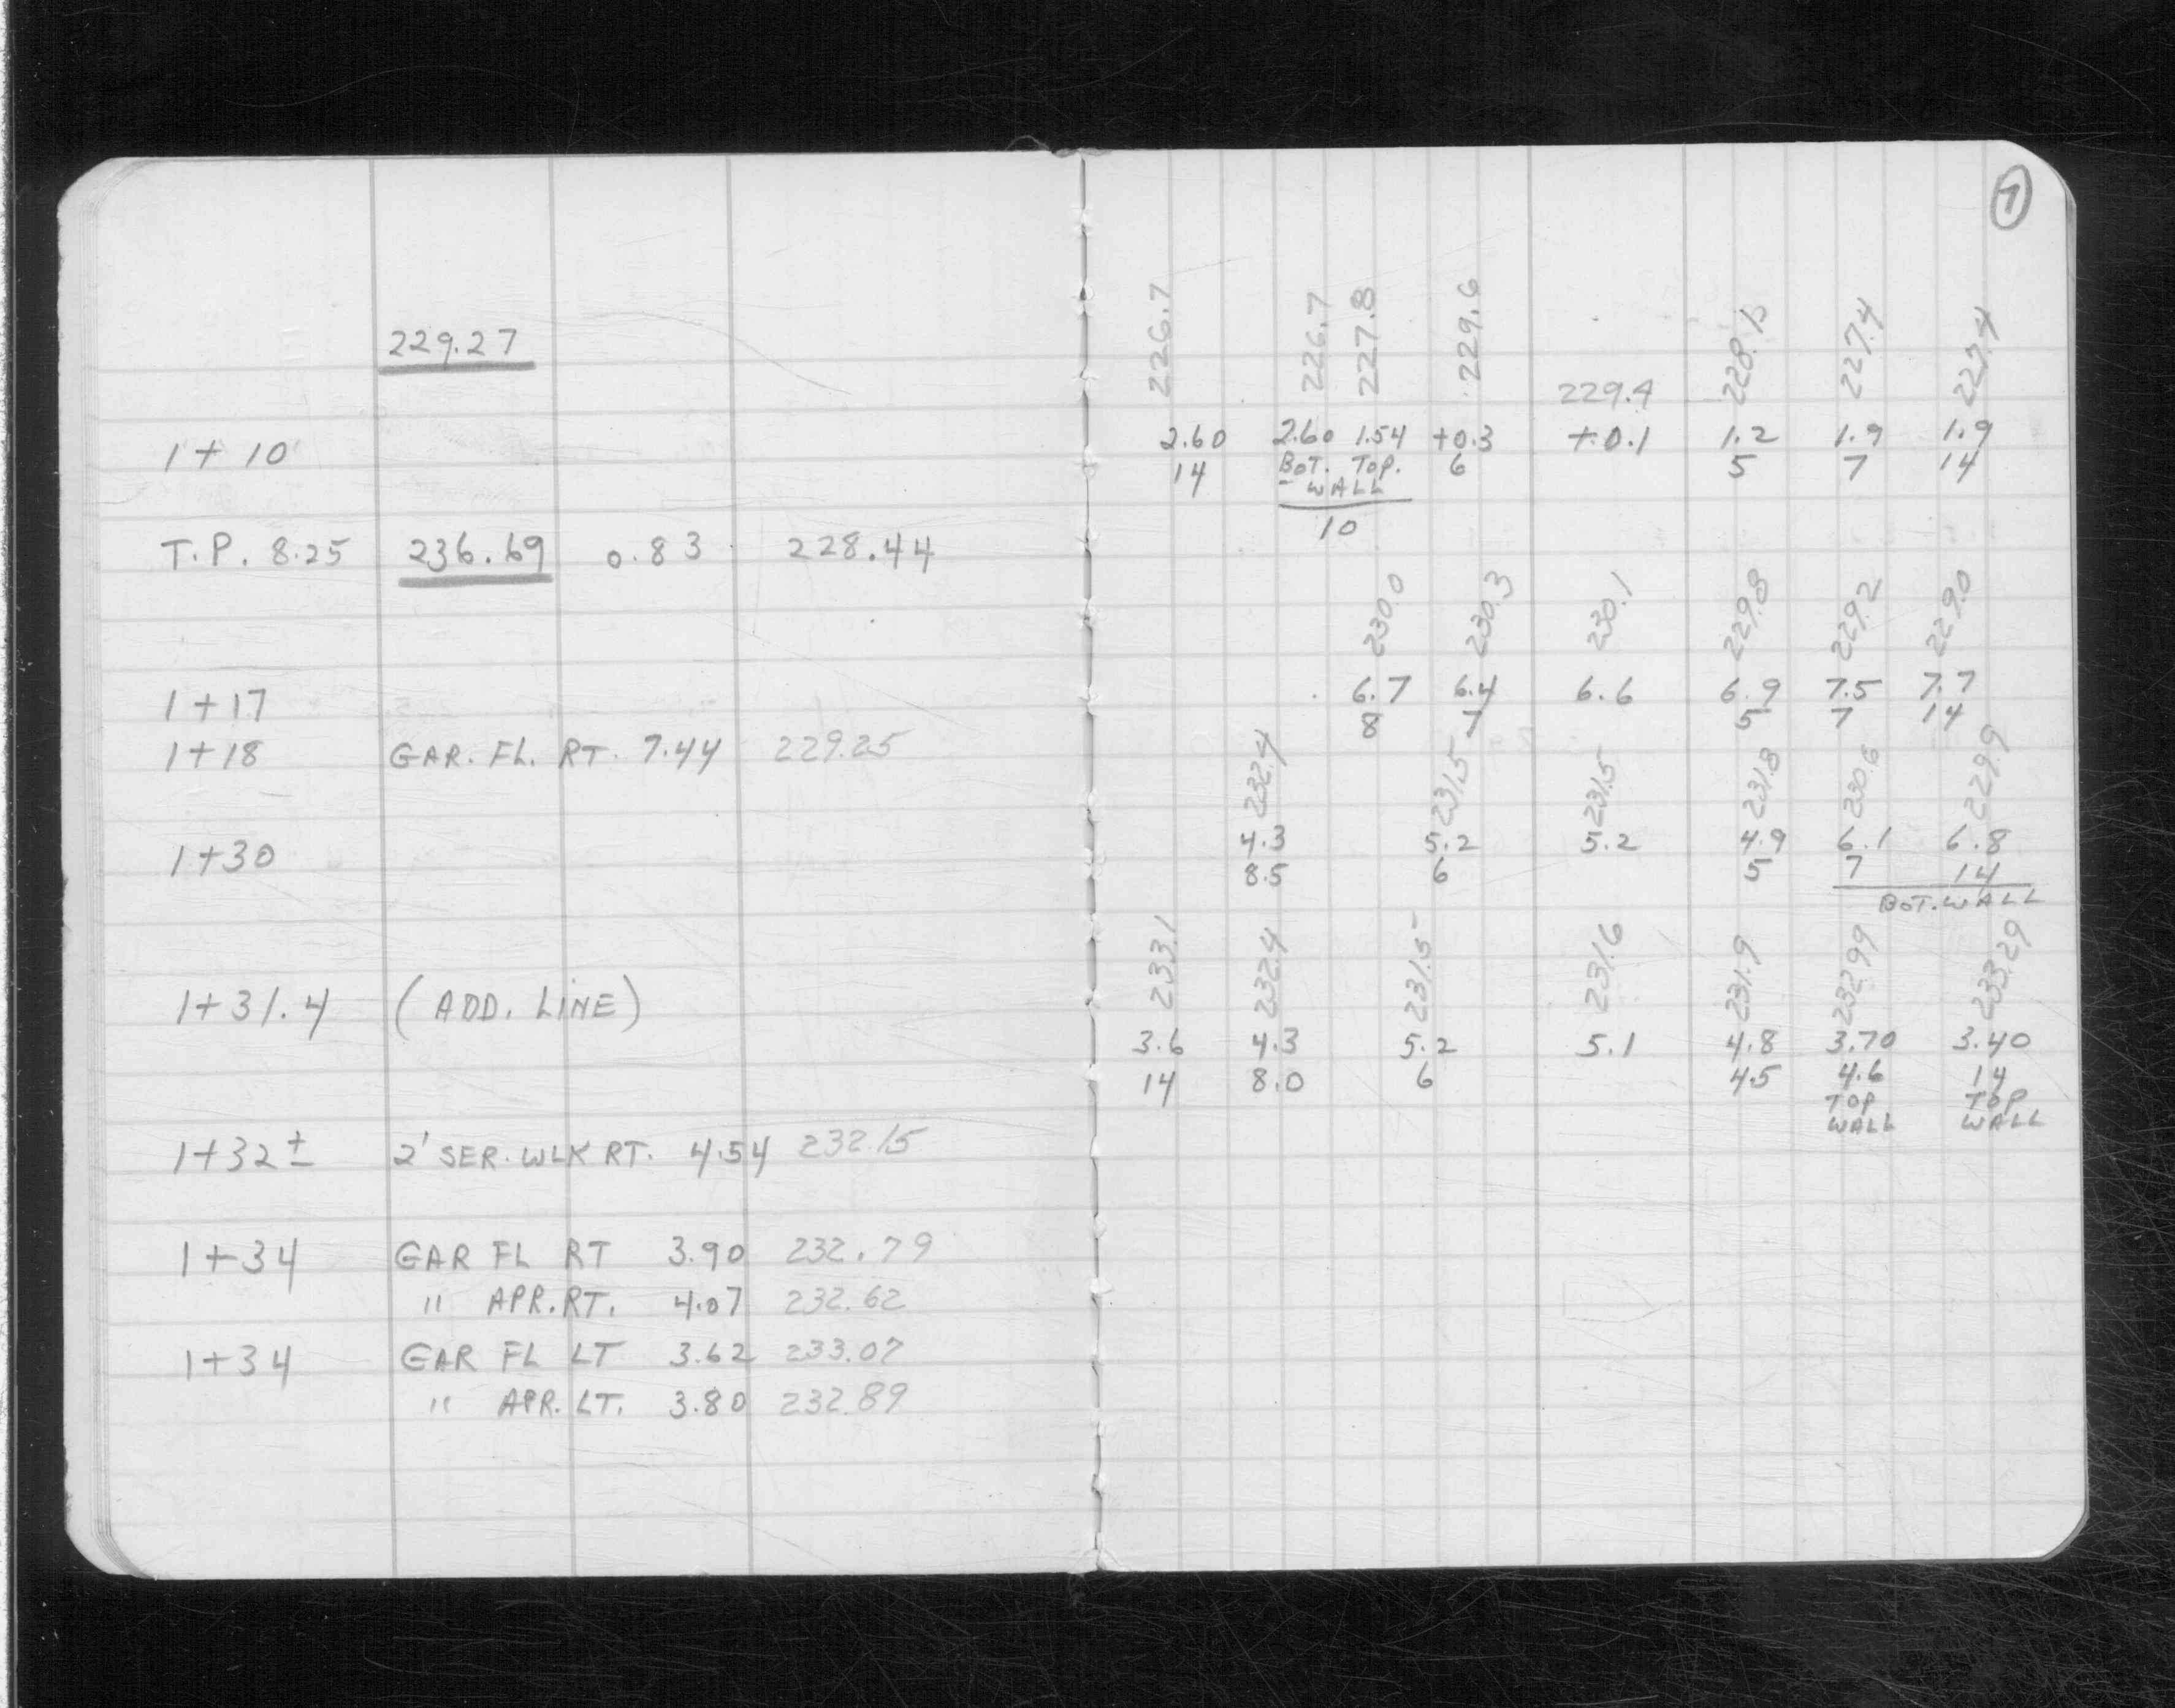 229.27
1+10
T.P. 8.25 236.69 0.83 228.44
1+17
1+18 GAR. FL. RT. 7.44 229.25
1+30
1+31.4 (ADD. LINE)
1+32± 2' SER. WLK RT. 4.54 232.15
1+34 GAR FL RT 3.90 232.79
" APR. RT. 4.07 232.62
1+34 GAR FL LT 3.62 233.07
" APR. LT. 3.80 232.89
7
226.7 226.7 227.8 229.6 229.4 228.1 227.4 227.4
2.60 2.60 1.54 +0.3 +0.1 1.2 1.9 1.9
14 BOT. TOP. 6 5 7 14
WALL
10
230.0 230.3 230.1 229.8 229.2 229.0
6.7 6.4 6.6 6.9 7.5 7.7
8 7 5 7 14
232.4 231.5 231.5 231.8 230.6 229.9
4.3 5.2 5.2 4.9 6.1 6.8
8.5 6 5 7 14
BOT. WALL
233.1 232.4 231.5 231.6 231.9 232.99 233.29
3.6 4.3 5.2 5.1 4.8 3.70 3.40
14 8.0 6 4.5 4.6 14
TOP TOP
WALL WALL